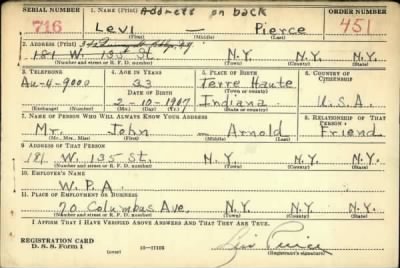 Address on back
SERIAL NUMBER 1. NAME (Print) ORDER NUMBER
716 Levi — Pierce 451
(First) (Middle) (Last)
2. ADDRESS (Print)
181 W. 135 St. N.Y. N.Y.
(Number and street or R. F. D. number) (Town) (County) (State)
3. TELEPHONE 4. AGE IN YEARS 5. PLACE OF BIRTH 6. COUNTRY OF CITIZENSHIP
Au-4-9000 33 Terre Haute
DATE OF BIRTH (Town or county)
2-10-1907 Indiana U.S.A.
(Exchange) (Number) (Mo.) (Day) (Yr.) (State or country)
7. NAME OF PERSON WHO WILL ALWAYS KNOW YOUR ADDRESS 8. RELATIONSHIP OF THAT PERSON
Mr. John — Arnold Friend
(Mr., Mrs., Miss) (First) (Middle) (Last)
9. ADDRESS OF THAT PERSON
181 W. 135 St. N.Y. N.Y.
(Number and street or R. F. D. number) (Town) (County) (State)
10. EMPLOYER'S NAME
W.P.A.
11. PLACE OF EMPLOYMENT OR BUSINESS
70 Columbus Ave. N.Y. N.Y.
(Number and street or R. F. D. number) (Town) (County) (State)
I AFFIRM THAT I HAVE VERIFIED ABOVE ANSWERS AND THAT THEY ARE TRUE.
REGISTRATION CARD
D. S. S. Form 1 Levi Pierce
(Registrant's signature)